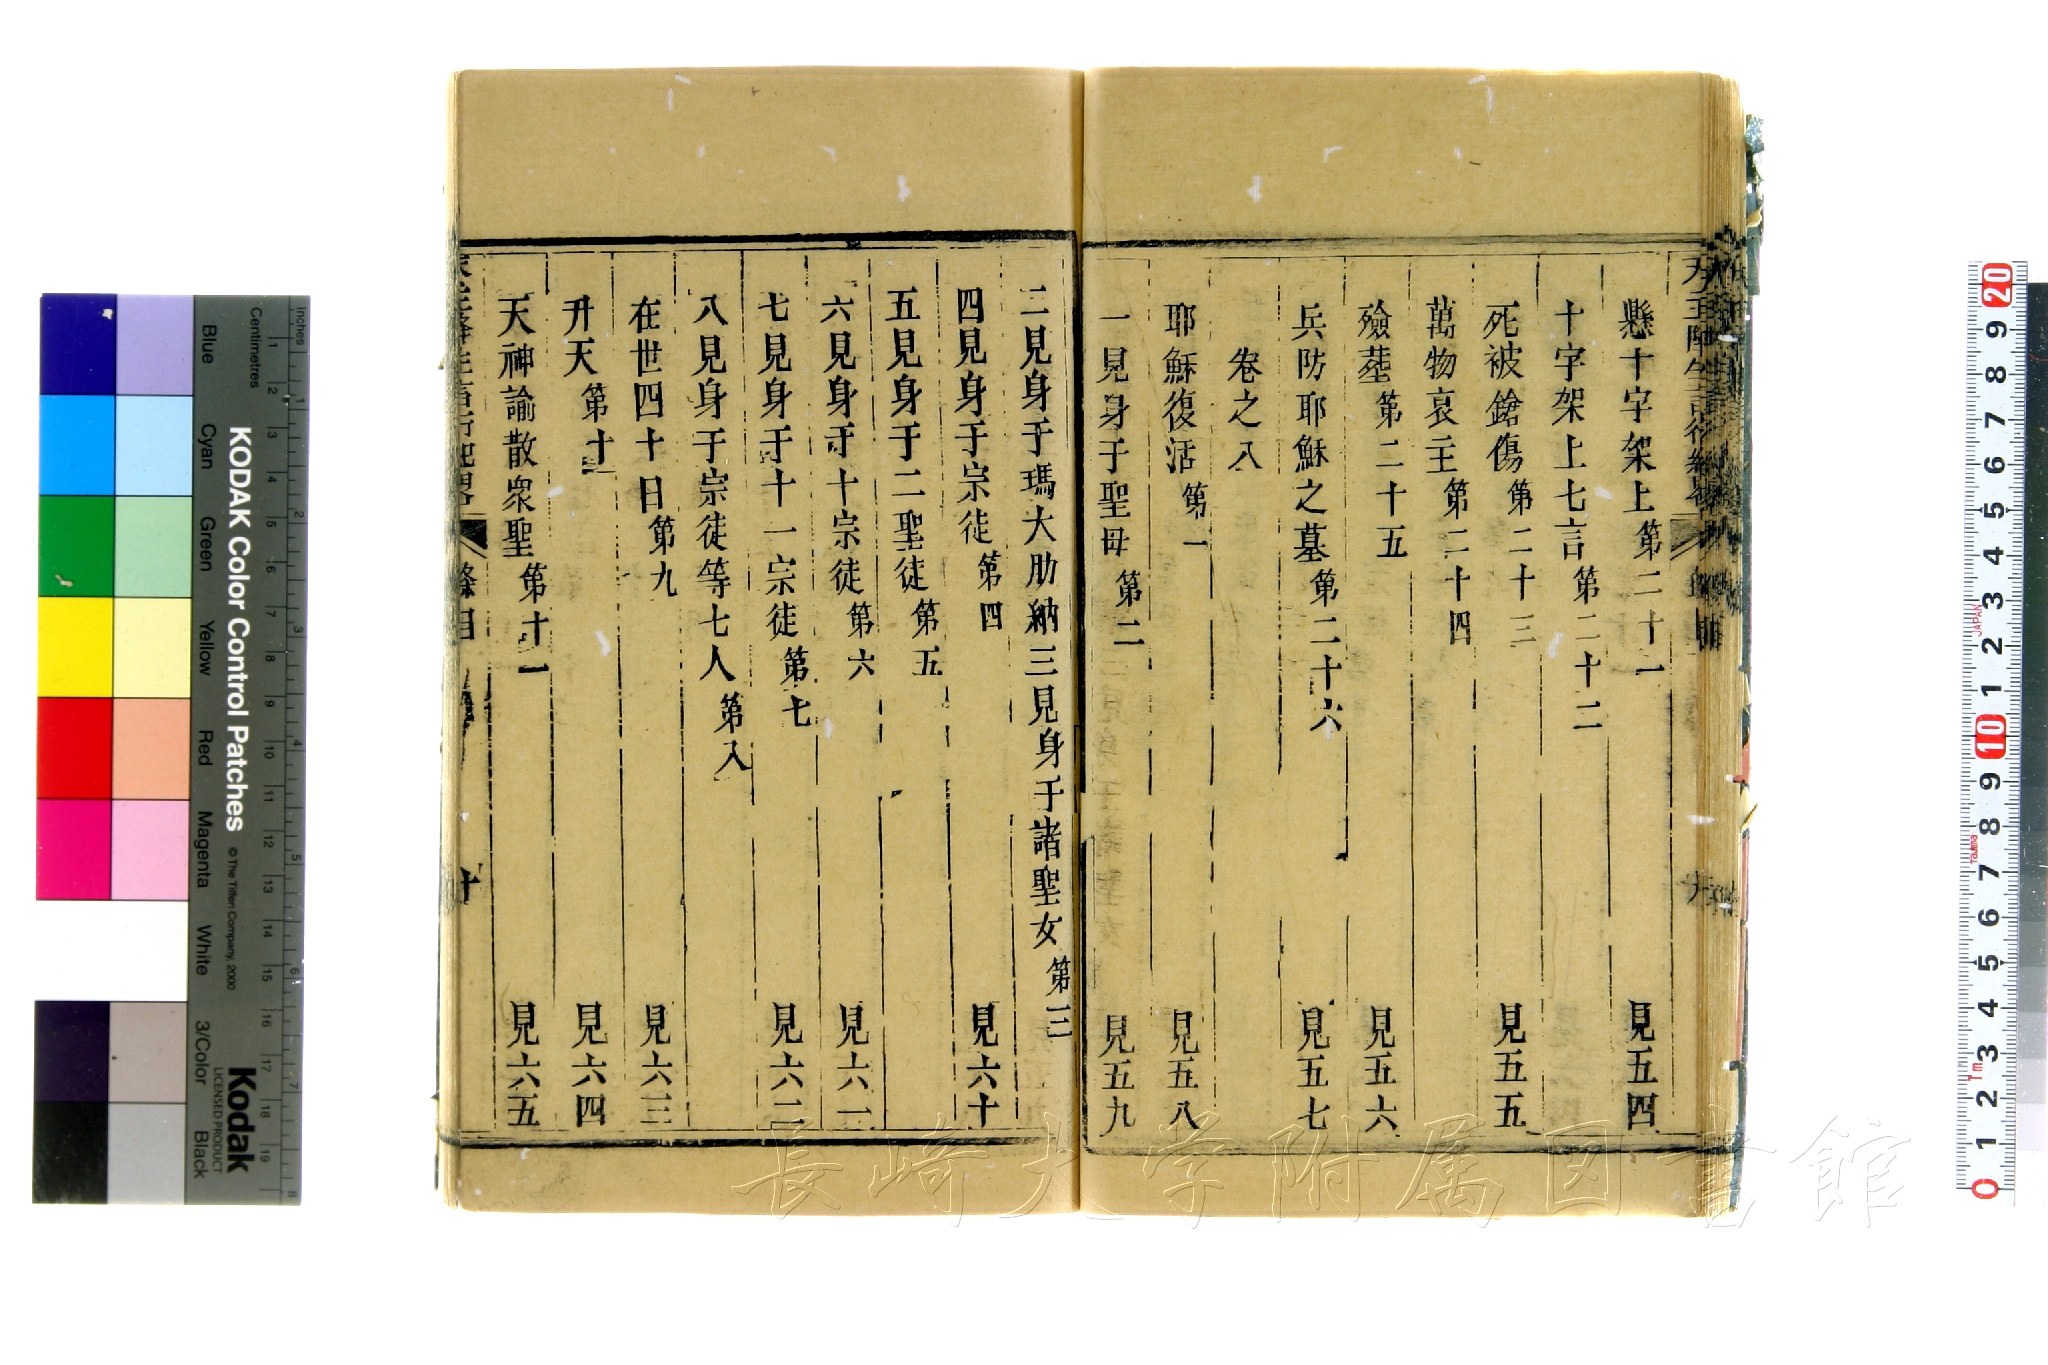 懸十字架上第二十一 見五四
十字架上七言第二十二
死被鎗傷第二十三 見五五
萬物哀主第二十四
殮葬第二十五 見五六
兵防耶穌之墓第二十六 見五七
卷之八
耶穌復活第一 見五八
一見身于聖母第二 見五九
二見身于瑪大肋納三見身于諸聖女第三
四見身于宗徒第四 見六十
五見身于二聖徒第五
六見身于十宗徒第六 見六一
七見身于十一宗徒第七 見六二
八見身于宗徒等七人第八
在世四十日第九 見六三
升天第十 見六四
天神諭散眾聖第十一 見六五
條目
十
長崎大学附属図書館
KODAK Color Control Patches
© The Tiffen Company, 2000
Kodak
LICENSED PRODUCT
Blue Cyan Green Yellow Red Magenta White 3/Color Black
Inches
1 2 3 4 5 6 7 8
Centimetres
1 2 3 4 5 6 7 8 9 10 11 12 13 14 15 16 17 18 19
0 1 2 3 4 5 6 7 8 9 10 1 2 3 4 5 6 7 8 9 20
1m
Tajima
JAPAN